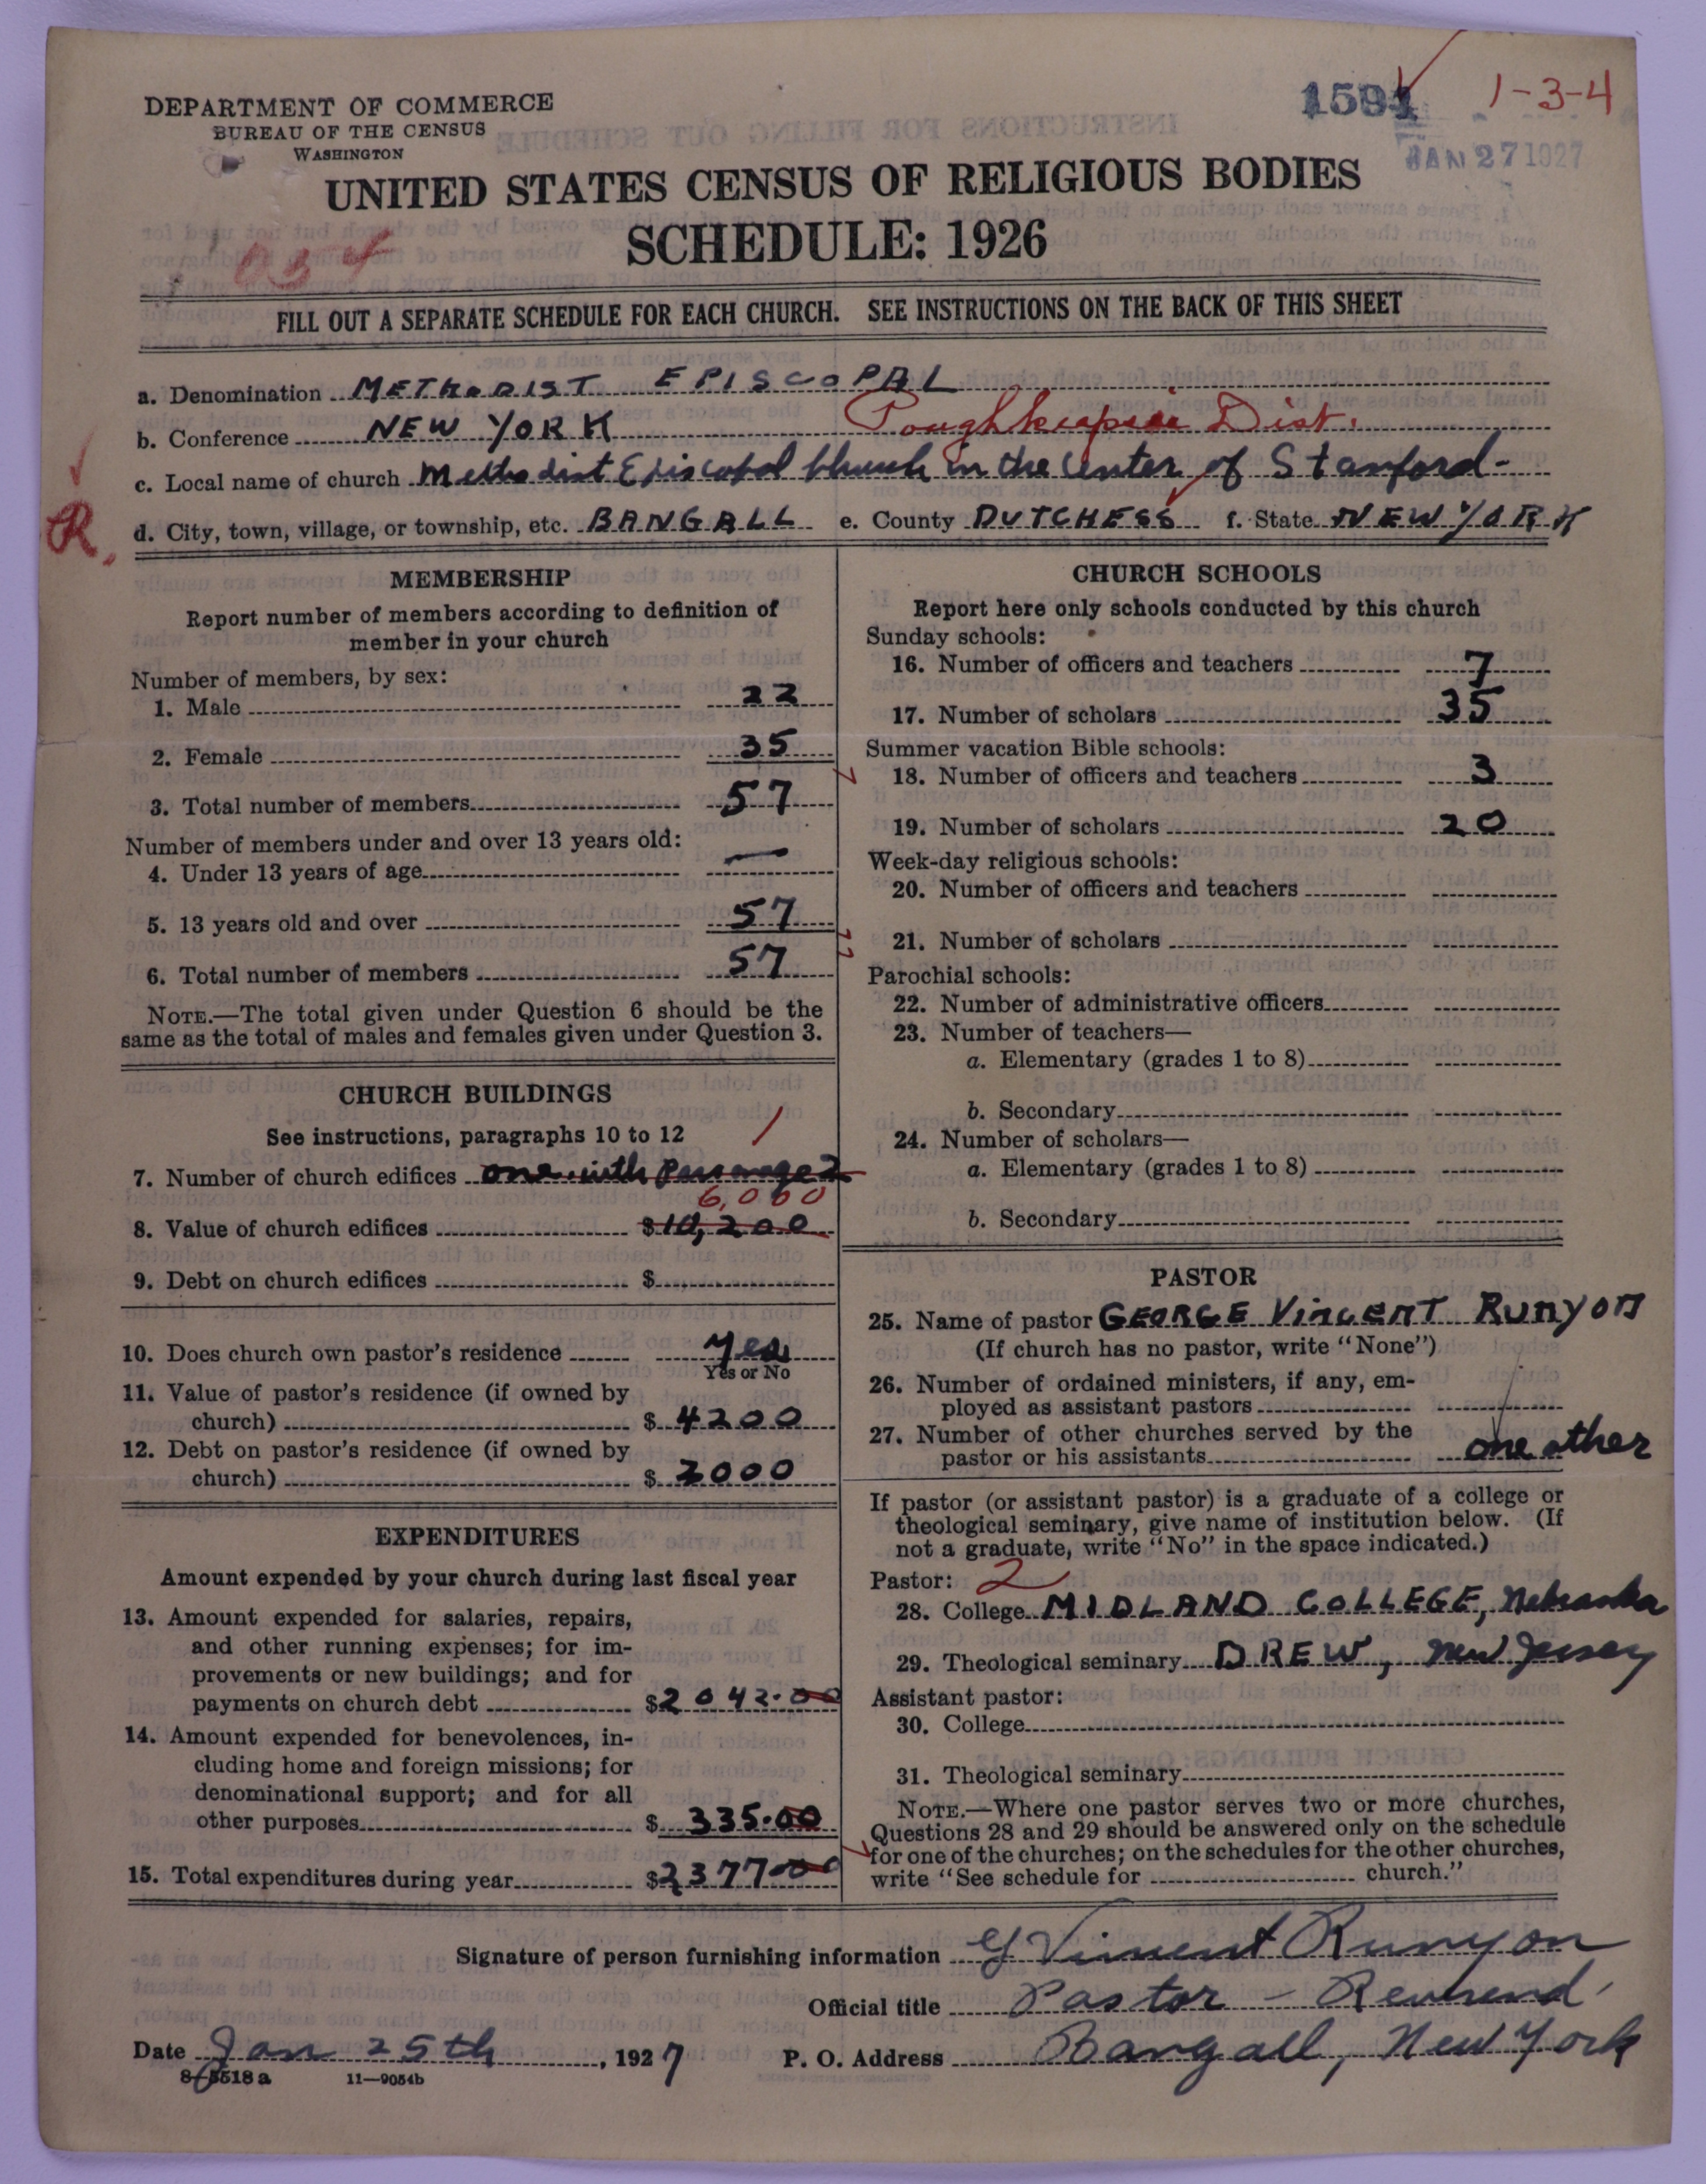 DEPARTMENT OF COMMERCE
BUREAU OF THE CENSUS
WASHINGTON
1594 1-3-4
JAN 27 1927
UNITED STATES CENSUS OF RELIGIOUS BODIES
SCHEDULE: 1926
FILL OUT A SEPARATE SCHEDULE FOR EACH CHURCH. SEE INSTRUCTIONS ON THE BACK OF THIS SHEET
a. Denomination METHODIST EPISCOPAL
b. Conference NEW YORK Poughkeepsie Dist.
c. Local name of church Methodist Episcopal Church in the Center of Stanford
R.
d. City, town, village, or township, etc. BANGALL e. County DUTCHESS f. State NEW YORK
MEMBERSHIP
Report number of members according to definition of
member in your church
Number of members, by sex:
1. Male 22
2. Female 35
3. Total number of members 57
Number of members under and over 13 years old:
4. Under 13 years of age —
5. 13 years old and over 57
6. Total number of members 57
NOTE.—The total given under Question 6 should be the
same as the total of males and females given under Question 3.
CHURCH BUILDINGS
See instructions, paragraphs 10 to 12 1
7. Number of church edifices one with Parsonage
6,000
8. Value of church edifices $10,200
9. Debt on church edifices $
10. Does church own pastor's residence Yes
Yes or No
11. Value of pastor's residence (if owned by
church) $ 4200
12. Debt on pastor's residence (if owned by
church) $ 2000
EXPENDITURES
Amount expended by your church during last fiscal year
13. Amount expended for salaries, repairs,
and other running expenses; for im-
provements or new buildings; and for
payments on church debt $2042.00
14. Amount expended for benevolences, in-
cluding home and foreign missions; for
denominational support; and for all
other purposes $ 335.00
15. Total expenditures during year $2377.00
CHURCH SCHOOLS
Report here only schools conducted by this church
Sunday schools:
16. Number of officers and teachers 7
17. Number of scholars 35
Summer vacation Bible schools:
18. Number of officers and teachers 3
19. Number of scholars 20
Week-day religious schools:
20. Number of officers and teachers
21. Number of scholars
Parochial schools:
22. Number of administrative officers
23. Number of teachers—
a. Elementary (grades 1 to 8)
b. Secondary
24. Number of scholars—
a. Elementary (grades 1 to 8)
b. Secondary
PASTOR
25. Name of pastor GEORGE VINCENT RUNYON
(If church has no pastor, write "None")
26. Number of ordained ministers, if any, em-
ployed as assistant pastors
27. Number of other churches served by the
pastor or his assistants one other
If pastor (or assistant pastor) is a graduate of a college or
theological seminary, give name of institution below. (If
not a graduate, write "No" in the space indicated.)
Pastor: 2
28. College MIDLAND COLLEGE, Nebraska
29. Theological seminary DREW, New Jersey
Assistant pastor:
30. College
31. Theological seminary
NOTE.—Where one pastor serves two or more churches,
Questions 28 and 29 should be answered only on the schedule
for one of the churches; on the schedules for the other churches,
write "See schedule for church."
Signature of person furnishing information G Vincent Runyon
Official title Pastor - Reverend
Date Jan 25th, 1927 P. O. Address Bangall, New York
8-5518 a 11—9054b